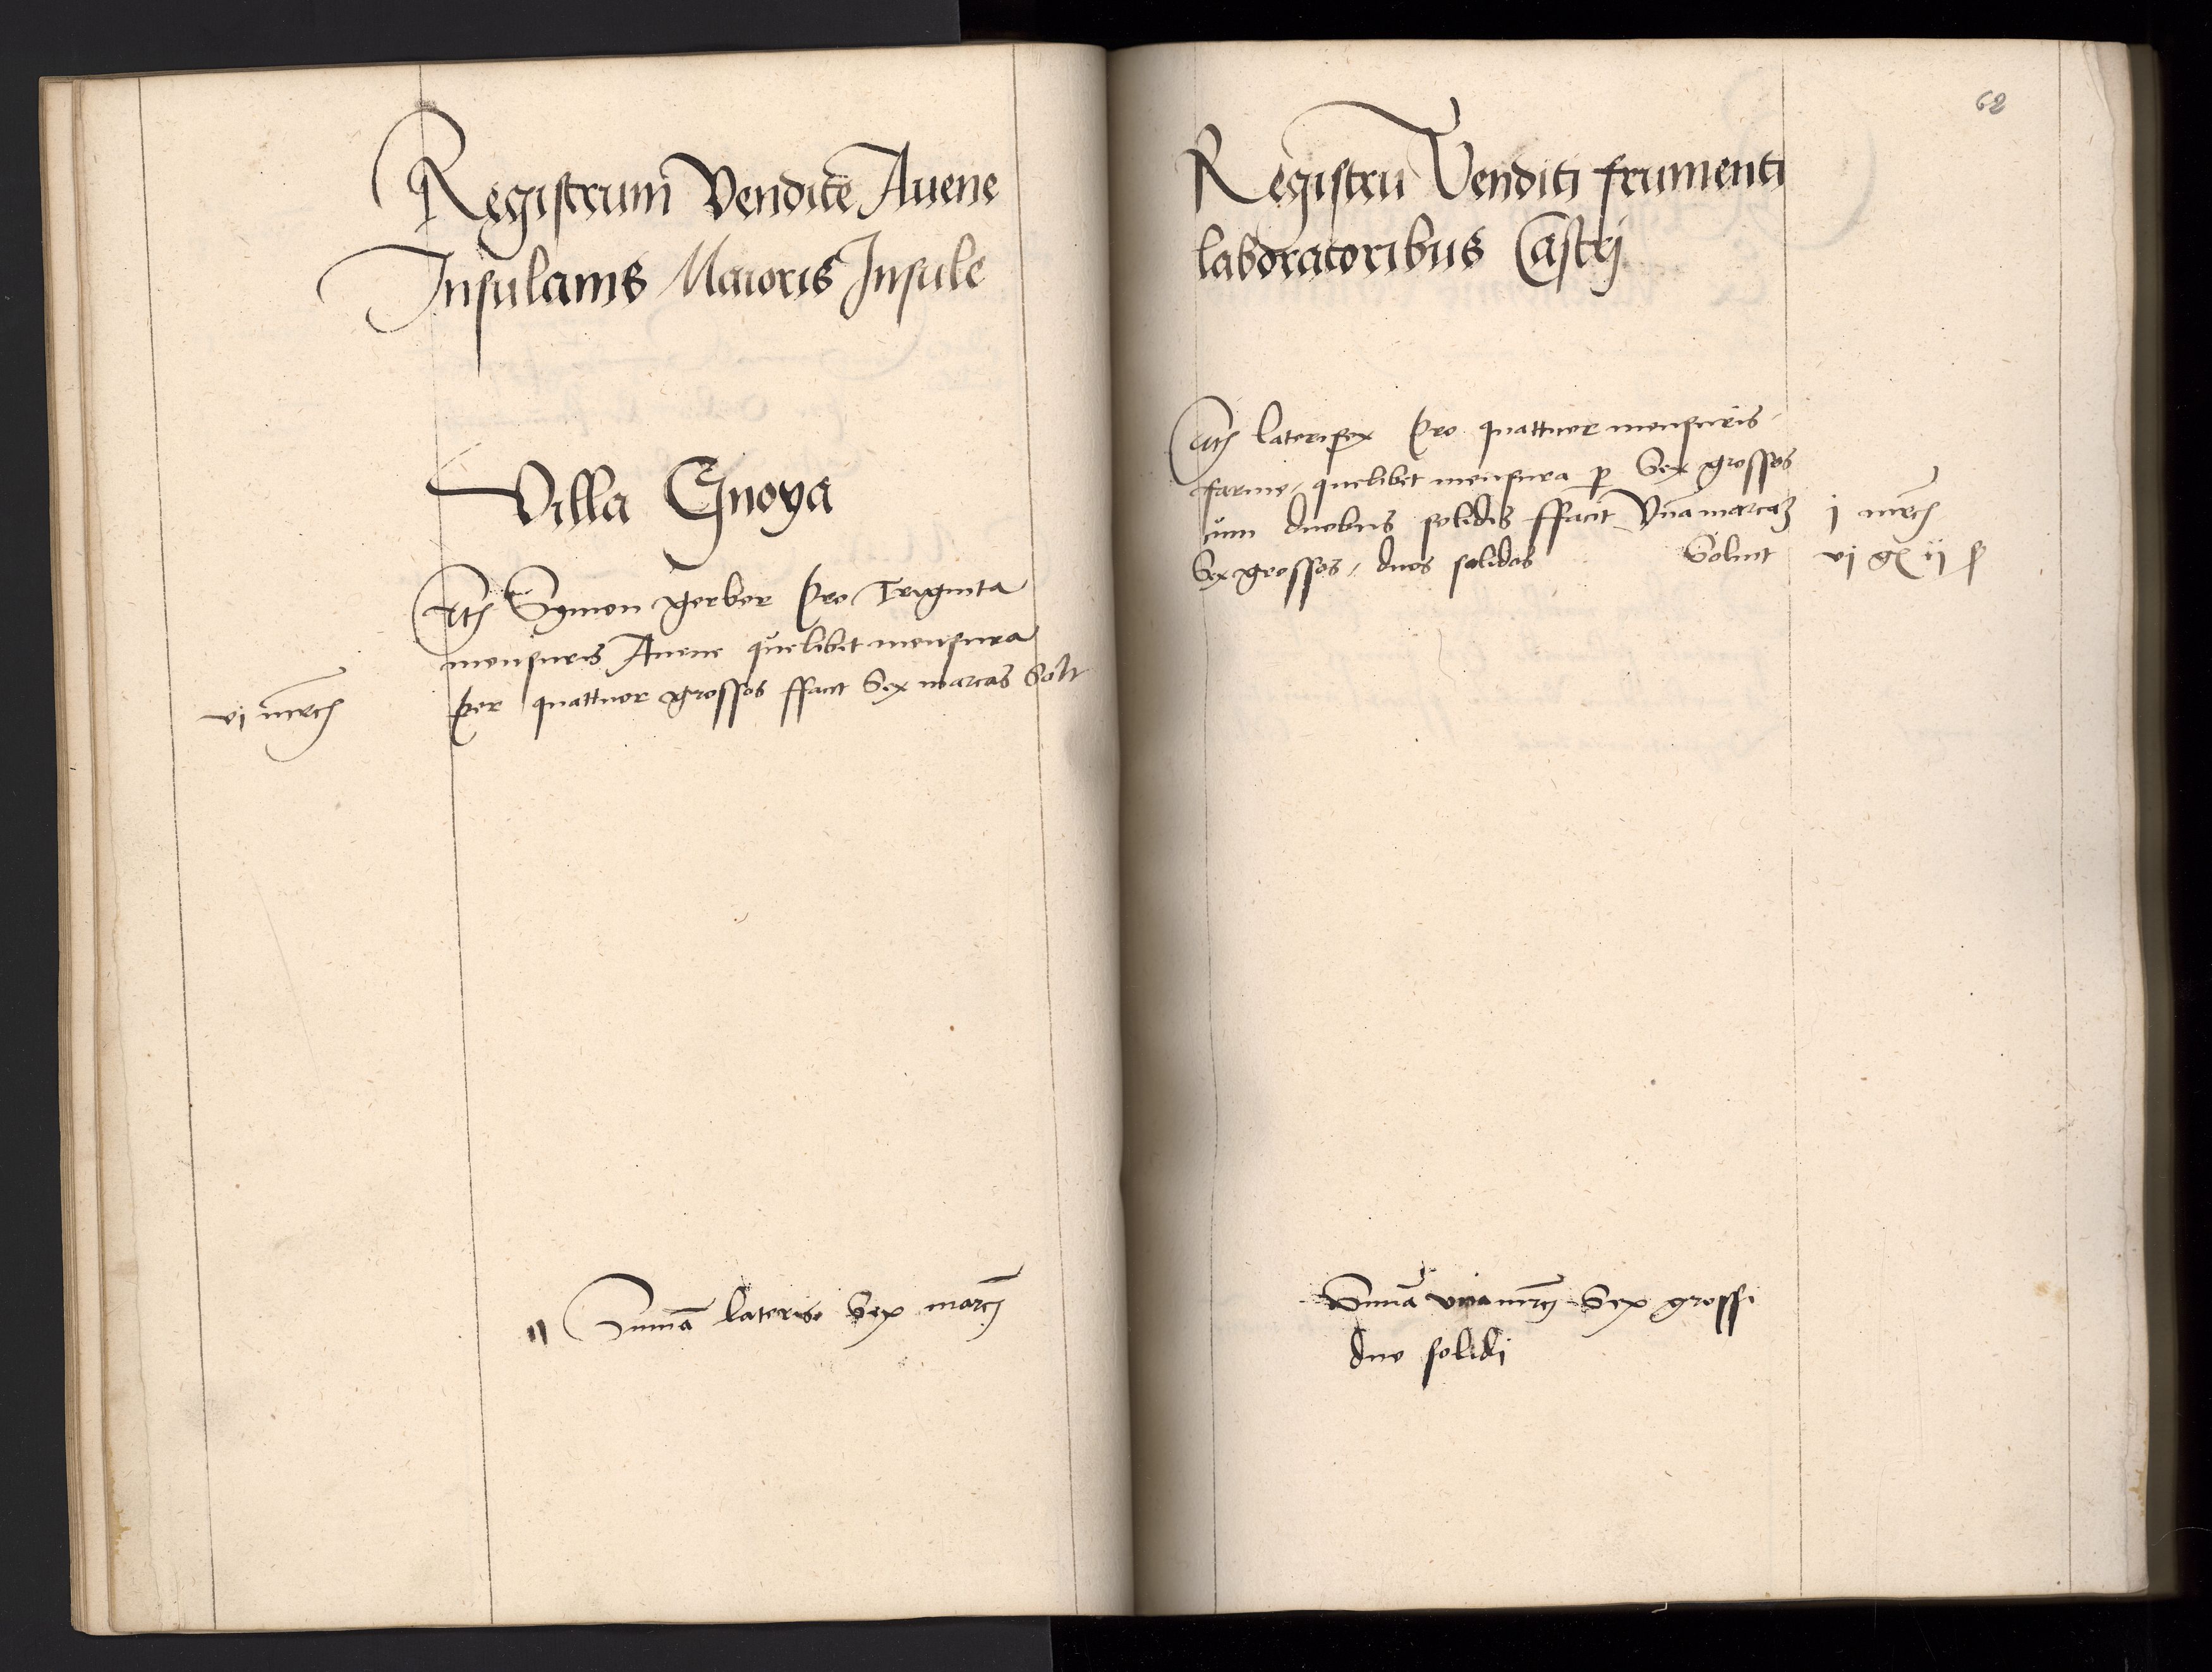 Registrum Vendite Auene
Insulanis Maioris Insule
Villa Gnoya
Itē Symon gerber pro Triginta
mensuris Auene quelibet mensura
per quattuor grossos ffacit Sex marcas Solt
vj mrcē
Sumā lateris Sex marcē
62
Registrū Venditi frumenti
laboratoribus Castrj
Itē laterifex pro quattuor mensuris
farine, quelibet mensura p Sex grossos
cum duobus solidis ffacit Vnā marcaʒ
j mrcē
Sex grossos, duos solidos Soluit
vj gꝛ ij ẜ
Sumā vna mrcē Sex grossi
duo solidi